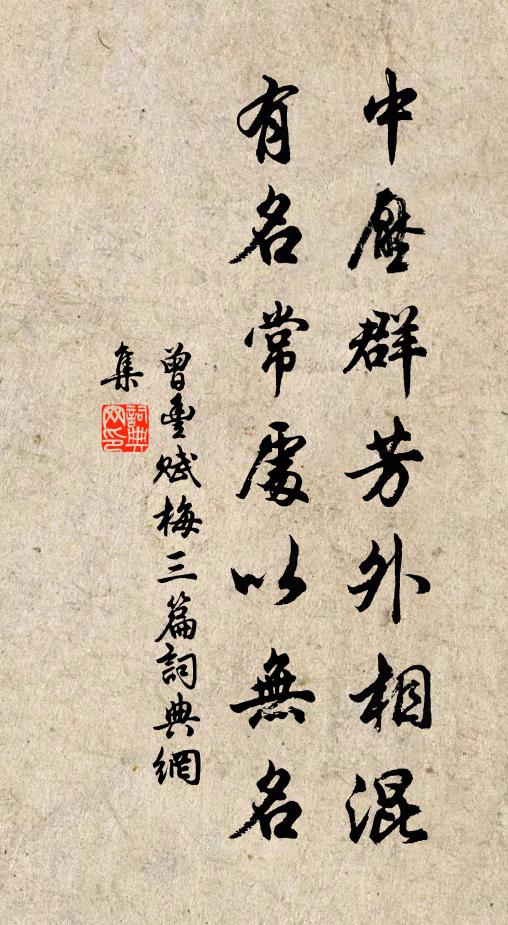 中壓群芳外相混
有名常處以無名
曾豐賦梅三篇詞典網
集
詞典
网印